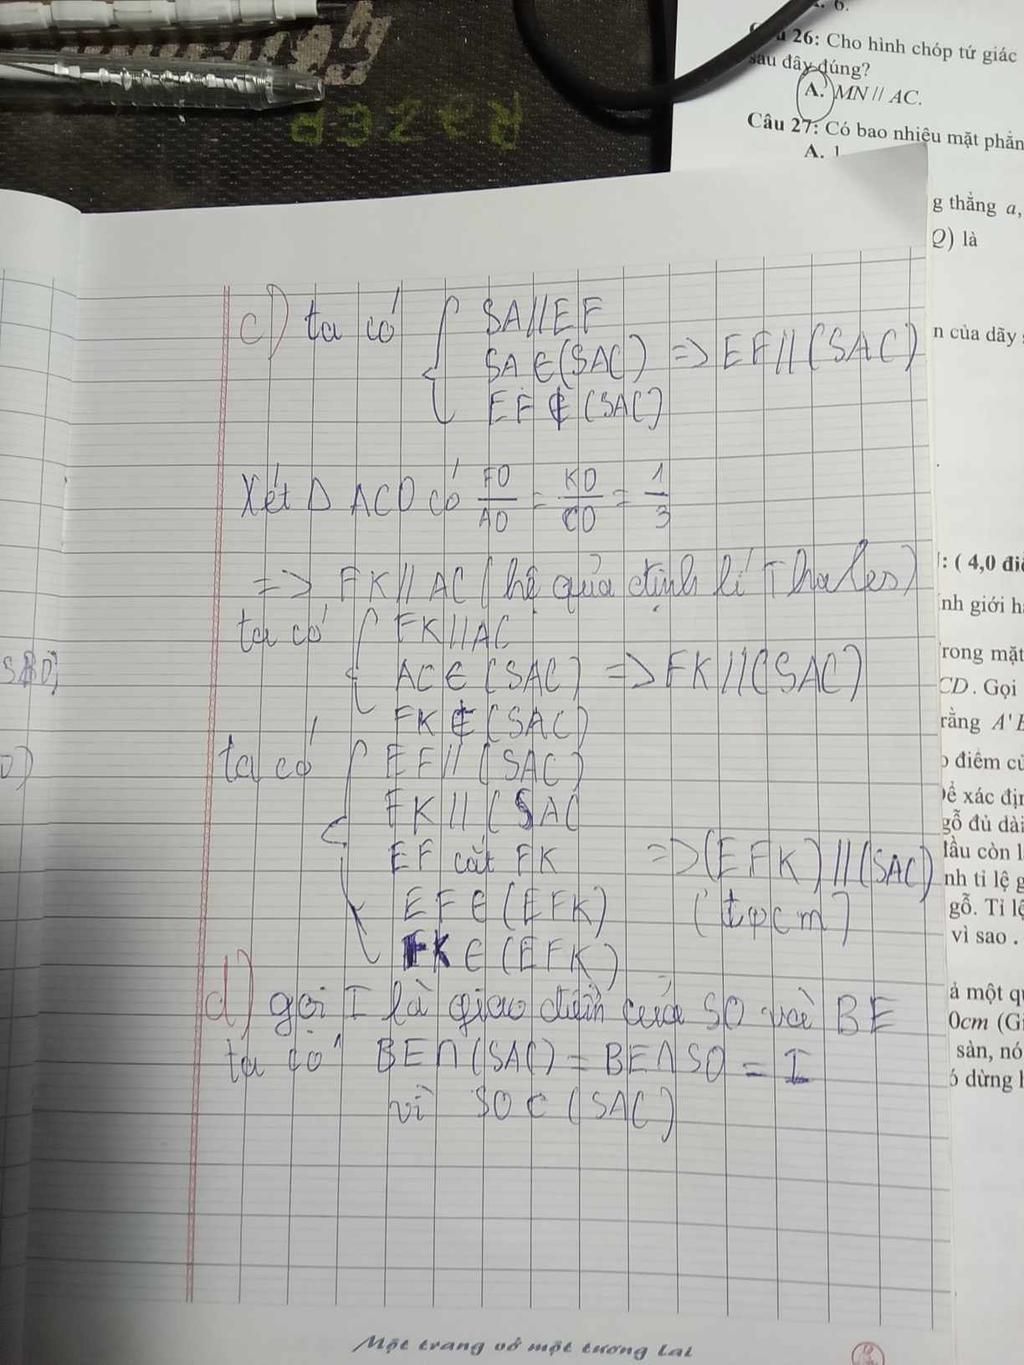 A. 6.
Câu 26: Cho hình chóp tứ giác
sau đây đúng?
A. MN // AC.
Câu 27: Có bao nhiêu mặt phẳn
A. 1
RAZER
g thẳng a,
Q) là
n của dãy
: ( 4,0 điể
ính giới h
Trong mặt
CD. Gọi
rằng A'B
điểm củ
Để xác địn
gỗ đủ dài
đầu còn l
nh tỉ lệ g
gỗ. Tỉ lệ
vì sao .
ả một qu
0cm (Gi
sàn, nó
ó dừng h
c) ta có { SA//EF
SA ∈ (SAC) => EF//(SAC)
EF ∉ (SAC)
Xét Δ ACD có FD/AD = KD/CD = 1/3
=> FK// AC (hệ quả định lí Thales)
ta có { FK//AC
AC ∈ (SAC) => FK//(SAC)
FK ∉ (SAC)
ta có { EF// (SAC)
FK// (SAC
EF cắt FK => (EFK)//(SAC)
EF ∈ (EFK) (tpcm)
FK ∈ (EFK)
d) gọi I là giao điểm của SO và BE
ta có BE∩(SAC) = BE∩SO = I
vì SO ⊂ (SAC)
Một trang vở một tương lai